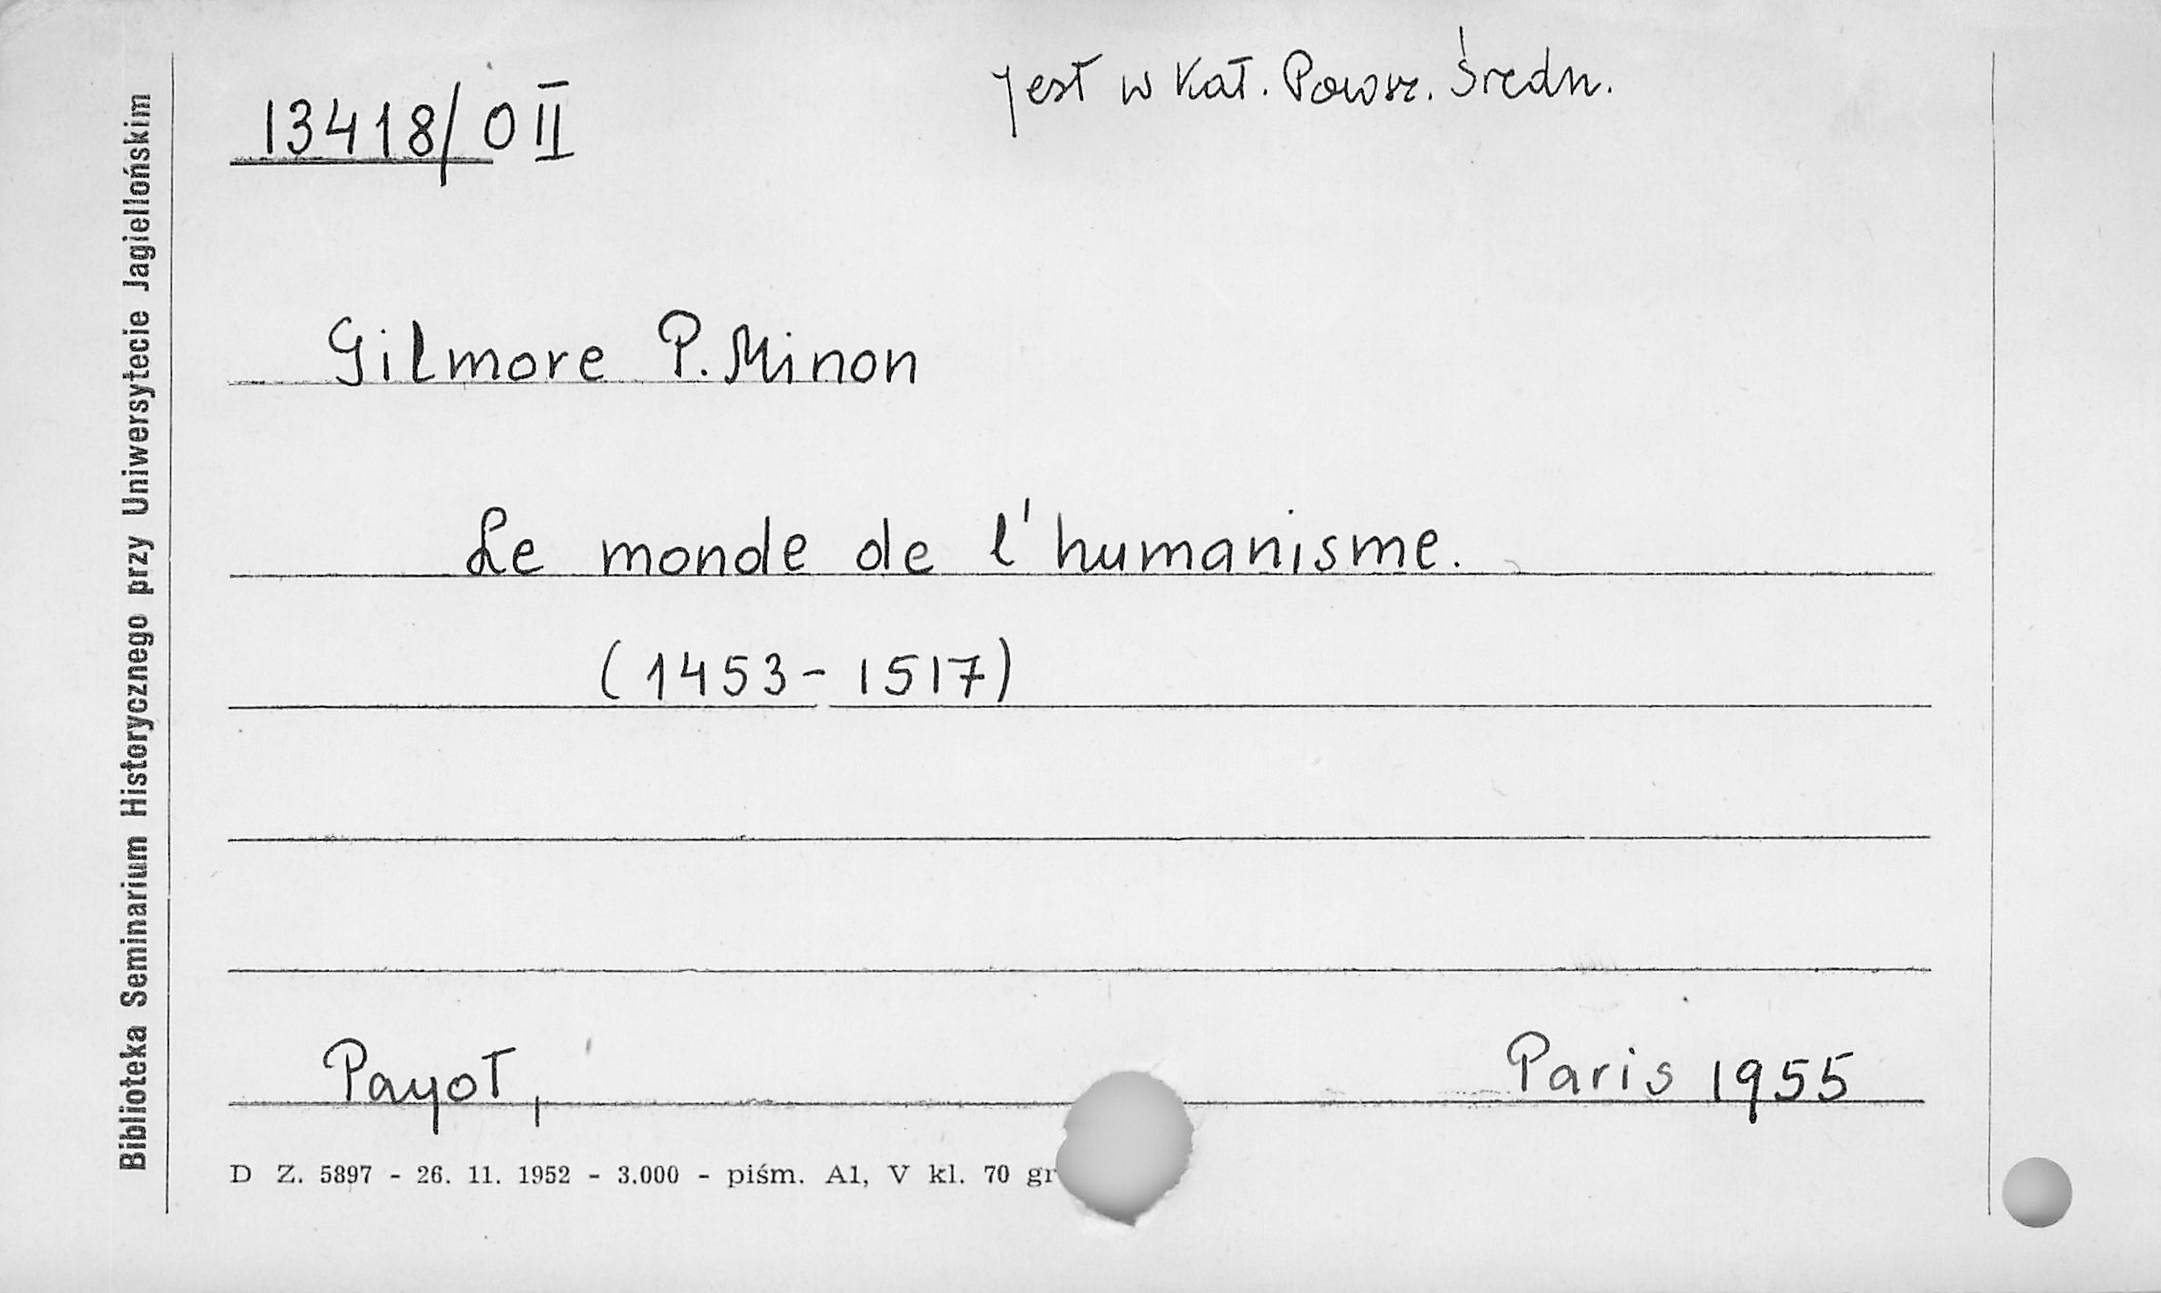 Jest w Kat. Powsz. Średn.
13418/O II
Gilmore P. Minon
Le monde de l'humanisme.
(1453-1517)
Payot, Paris 1955
D Z. 5897 - 26. 11. 1952 - 3.000 - piśm. A1, V kl. 70 gr
Biblioteka Seminarium Historycznego przy Uniwersytecie Jagiellońskim